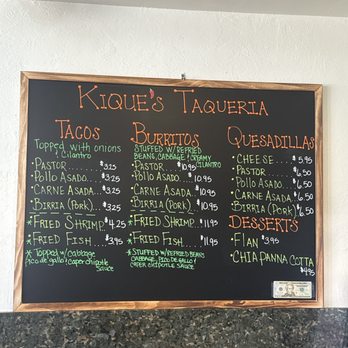 Kique's Taqueria
Tacos
Topped with onions
& cilantro
• Pastor.... $3.25
• Pollo Asado... $3.25
• Carne Asada... $3.25
• Birria (Pork)... $3.25
*Fried Shrimp.. $4.25
*Fried Fish.... $3.95
* Topped w/ cabbage
Pico de gallo & caper chipotle
sauce
Burritos
Stuffed w/ refried
beans, cabbage & creamy
cilantro
• Pastor...... $10.95
• Pollo Asado.. $10.95
• Carne Asada.. $10.95
• Birria (Pork).. $10.95
*Fried Shrimp... $11.95
*Fried Fish.... $11.95
* Stuffed w/ refried beans
cabbage, pico de gallo &
caper chipotle sauce
Quesadillas
• Cheese.... $5.95
• Pastor.... $6.50
• Pollo Asado.. $6.50
• Carne Asada.. $6.50
Birria (Pork) $6.50
Desserts
• Flan $3.95
• Chia Panna Cotta
$4.95